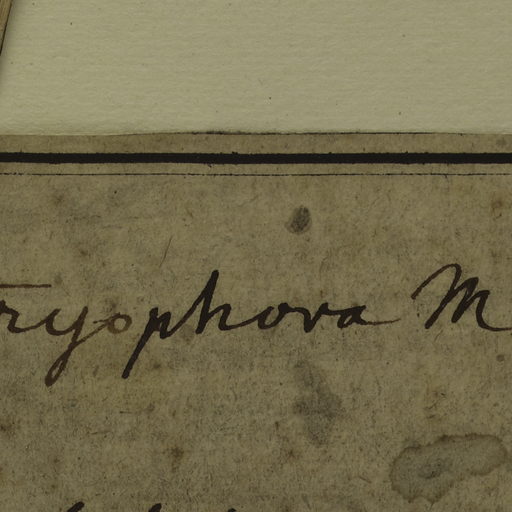 ryophora M